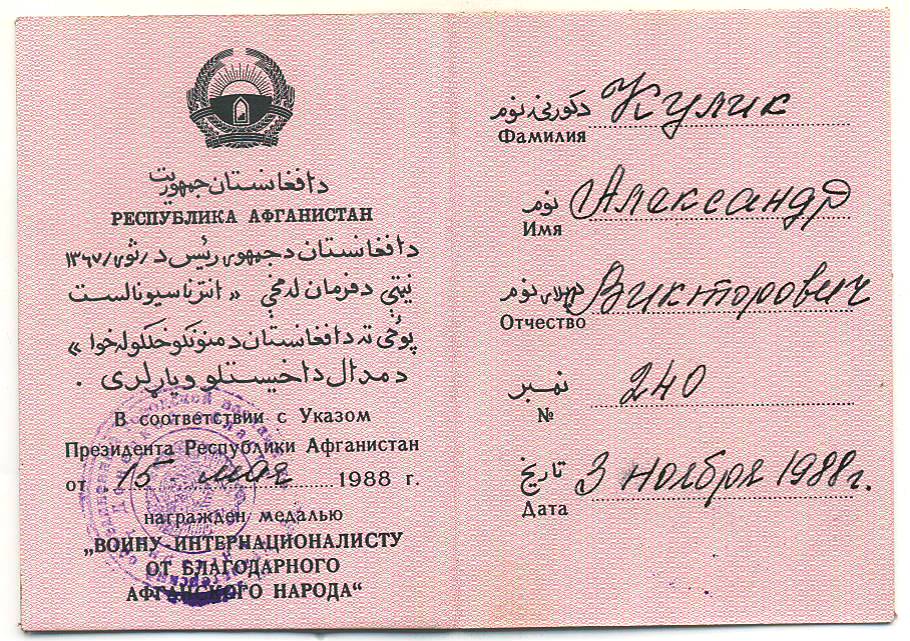 دافغانستان جمهوریت
РЕСПУБЛИКА АФГАНИСТАН
دافغانستان دجمهوری رئیس د / ثور / ۱۳۶۷
نیټې دفرمان له مخې « انترناسیونالست
پوځی ته دافغانستان د منونکو خلکو له خوا »
د مدال داخیستلو ویاړ لری .
В соответствии с Указом
Президента Республики Афганистан
от 15 мая 1988 г.
награжден медалью
„ВОИНУ-ИНТЕРНАЦИОНАЛИСТУ
ОТ БЛАГОДАРНОГО
АФГАНСКОГО НАРОДА“
دکورنۍ نوم Кулик
Фамилия
نوم Александр
Имя
دپلار نوم Викторович
Отчество
نمبر 240
№
تاریخ 3 ноября 1988г.
Дата